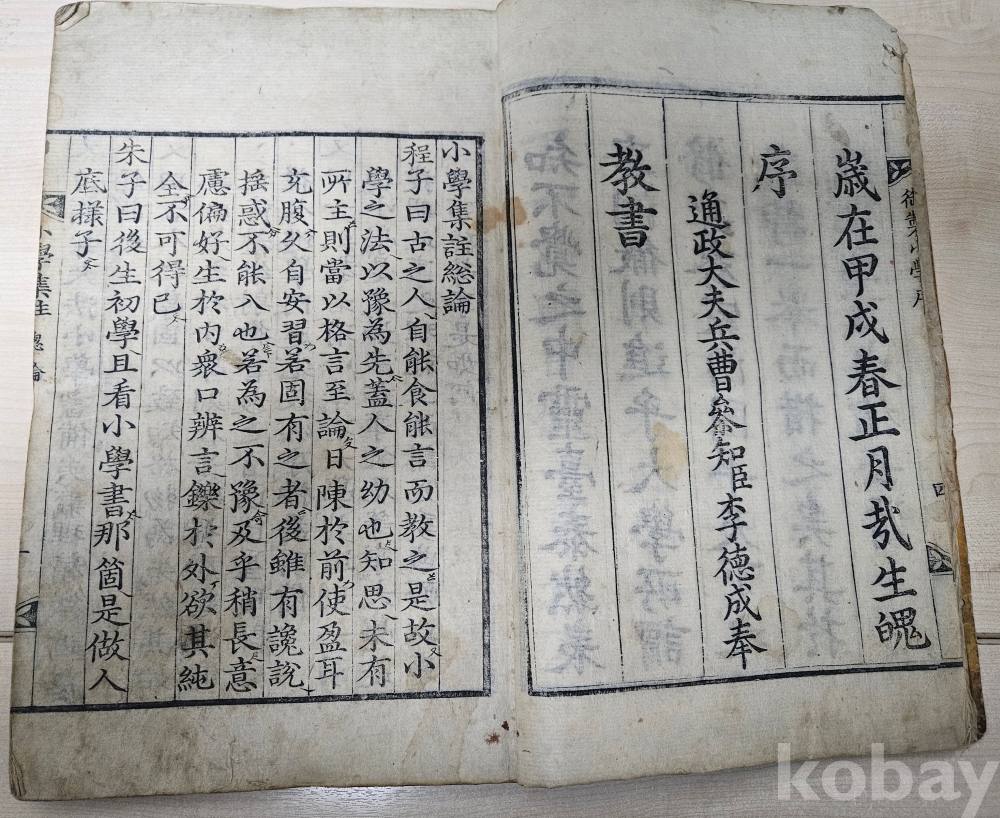 御製小學序
四
歲在甲戌春正月哉生魄
序
通政大夫兵曹叅知臣李德成奉
教書
小學集註総論
程子曰古之人自能食能言而教之是故小
學之法以豫為先蓋人之幼也知思未有
所主則當以格言至論日陳於前使盈耳
充腹久自安習若固有之者後雖有讒說
搖惑不能入也若為之不豫及乎稍長意
慮偏好生於內衆口辨言鑠於外欲其純
全不可得已
朱子曰後生初學且看小學書那箇是做人
底樣子
小學集註 總論
kobay